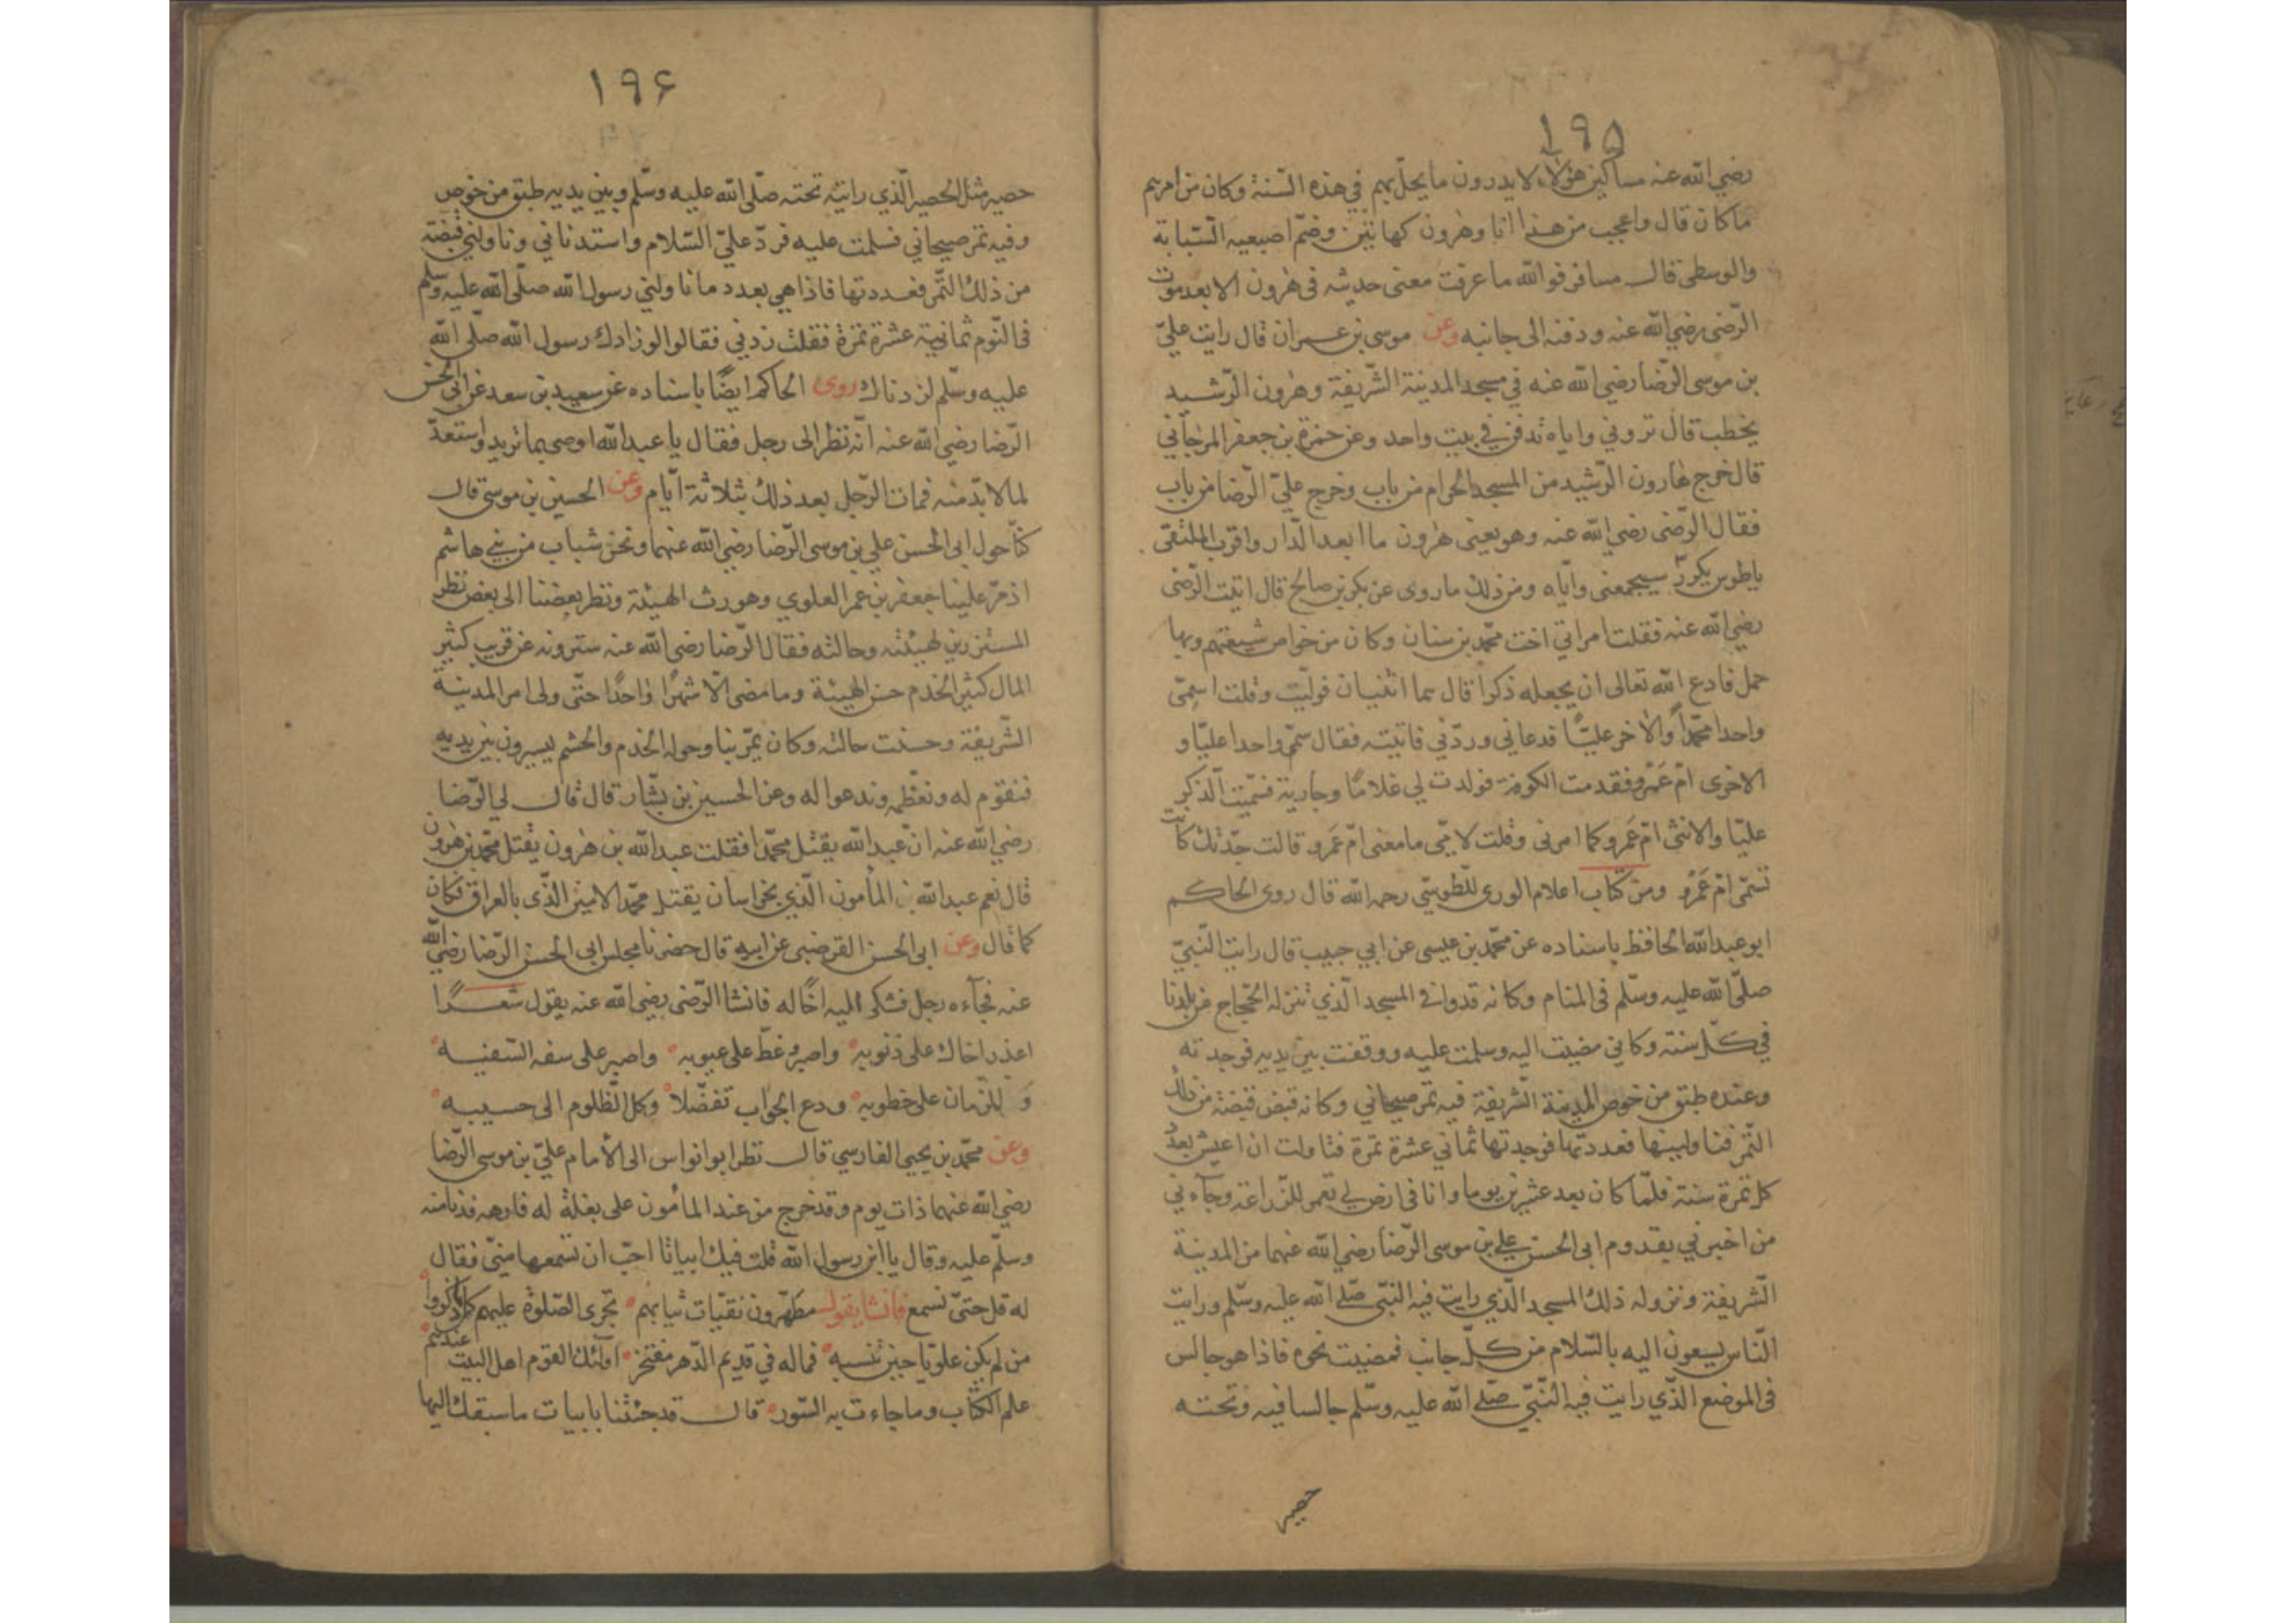 ١٩٥
رضي الله عنه مساكين هؤلاء لا يدرون ما يحلّ بهم في هذه السّنة وكان من امرهم
ما كان قال واعجب من هذا انا وهرون كهاتين وضمّ اصبعيه السّبابة
والوسطى قال مسافر فوالله ما عرفت معنى حديثه فى هرون الا بعد موت
الرّضى رضي الله عنه ودفنه الى جانبه وعن موسى بن عمران قال رايت عليّ
بن موسى الرّضا رضي الله عنه في مسجد المدينة الشّريفة وهرون الرّشيد
يخطب قال تروني واياه ندفن في بيت واحد وعن حمزة بن جعفر المرجاني
قال خرج هارون الرّشيد من المسجد الحرام من باب وخرج عليّ الرّضا من باب
فقال الرّضى رضي الله عنه وهو يعنى هرون ما ابعد الدّار واقرب الملتقى
ياطوس سيجمعنى وايّاه ومن ذلك ما روى عن بكر بن صالح قال اتيت الرّضى
رضي الله عنه فقلت امراتي اخت محمّد بن سنان وكان من خواص شيعتهم وبها
حمل فادع الله تعالى ان يجعله ذكرا قال هما اثنان فوليت وقلت اسمّى
واحدا محمّداً والاخر عليّا فدعاني وردّني فاتيته فقال سمّ واحدا عليّا و
الاخرى امّ عَمْرو فقدمت الكوفة فولدت لي غلامًا وجارية فسمّيت الذّكر
عليّا والانثى امّ عَمرو كما امرنى وقلت لامّى ما معنى امّ عَمرو قالت جدّتك كانت
تسمّى امّ عَمْرو ومن كتاب اعلام الورى للطّوسيّ رحمه الله قال روى الحاكم
ابو عبد الله الحافظ باسناده عن محمّد بن عيسى عن ابي حبيب قال رايت النّبيّ
صلّى الله عليه وسلّم فى المنام وكانه قد وافى المسجد الّذي تنزله الحجّاج من بلدنا
في كلّ سنة وكاني مضيت اليه وسلمت عليه ووقفت بين يديه فوجدته
وعنده طبق من خوص المدينة الشّريفة فيه تمر صيحاني وكانه قبض قبضة من ذلك
التّمر فناولنيها فعددتها فوجدتها ثماني عشرة تمرة فتاولت ان اعيش بعدد
كل تمرة سنة فلمّا كان بعد عشرين يوما وانا فى ارض لي تعمر للزّراعة وجآءني
من اخبرني بقدوم ابى الحسن علي بن موسى الرّضا رضي الله عنهما من المدينة
الشّريفة ونزوله ذلك المسجد الّذي رايت فيه النّبى صلّى الله عليه وسلّم ورايت
النّاس يسعون اليه بالسّلام من كلّ جانب فمضيت نحوه فاذا هو جالس
فى الموضع الّذي رايت فيه النّبيّ صلّى الله عليه وسلّم جالسا فيه وتحته
حصير
١٩۶
حصير مثل الحصير الّذي رايته تحته صلّى الله عليه وسلّم وبين يديه طبق من خوص
وفيه تمر صيحاني فسلمت عليه فردّ عليّ السّلام واستدناني وناولني قبضة
من ذلك التّمر فعددتها فاذا هي بعدد ما ناولني رسول الله صلّى الله عليه وسلّم
فى النّوم ثمانية عشرة تمرة فقلت زدني فقالوا لو زادك رسول الله صلّى الله
عليه وسلّم لزدناك روى الحاكم ايضًا باسناده عن سعيد بن سعد عن ابى الحسن
الرّضا رضي الله عنه انّه نظر الى رجل فقال يا عبد الله اوصى بما تريد واستعدّ
لما لا بدّ منه فمات الرّجل بعد ذلك بثلاثة ايّام وعن الحسين بن موسى قال
كنّا حول ابى الحسن علي بن موسى الرّضا رضي الله عنهما ونحن شباب من بني هاشم
اذ مرّ علينا جعفر بن عمر العلوي وهو رث الهيئة ونظر بعضنا الى بعض نظر
المستزرين لهيئته وحالته فقال الرّضا رضي الله عنه سترونه عن قريب كثير
المال كثير الخدم حسن الهيئة وما مضى الّا شهرًا واحدًا حتّى ولى امر المدينة
الشّريفة وحسنت حالته وكان يمرّ بنا وحوله الخدم والحشم يسيرون بين يديه
فنقوم له ونعظّمه وندعوا له وعن الحسين بن بشّار قال قال لي الرّضا
رضي الله عنه انّ عبد الله يقتل محمّدا فقلت عبد الله بن هرون يقتل محمّد بن هرون
قال نعم عبد الله المأمون الّذي بخراسان يقتل محمّد الامين الّذى بالعراق فكان
كما قال وعن ابى الحسن القرضبى عن ابيه قال حضرنا مجلس ابى الحسن الرّضا رضي الله
عنه فجآءه رجل فشكى اليه اخًا له فانشا الرّضى رضي الله عنه يقول شعرًا
اعذر اخاك على ذنوبه واصبر وغطّ على عيوبه واصبر على سفه السّفيه
وَ للزّمان على خطوبه ودع الجواب تفضّلاً وكل الظّلوم الى حسيبه
وعن محمّد بن يحيى الفارسي قال نظر ابو نواس الى الأمام عليّ بن موسى الرّضا
رضي الله عنهما ذات يوم وقد خرج من عند المامُون على بغلة له فارهه فدنا منه
وسلّم عليه وقال يا ابن رسول الله قلت فيك ابياتا احبّ ان تسمعها منّي فقال
له قل حتىّ نسمع فانشا يقول مطهّرون نقيّات ثيابهم تجرى الصّلوة عليهم كلّما ذكروا
من لم يكن علويّا حين تنسبه فماله في قديم الدّهر مفتخر اولئك القوم اهل البيت عندهم
علم الكتاب وما جاءت به السّور قال قد جئتنا بابيات ما سبقك اليها